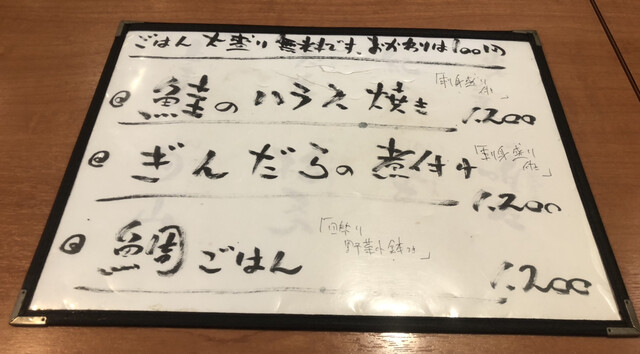 ごはん 大盛り無料です。おかわりは100円
@ 鮭のハラス焼き 「刺身盛り付」 1,200
@ ぎんだらの煮付け 「刺身盛り付」 1,200
@ 鯛ごはん 1,200
野菜小鉢付」